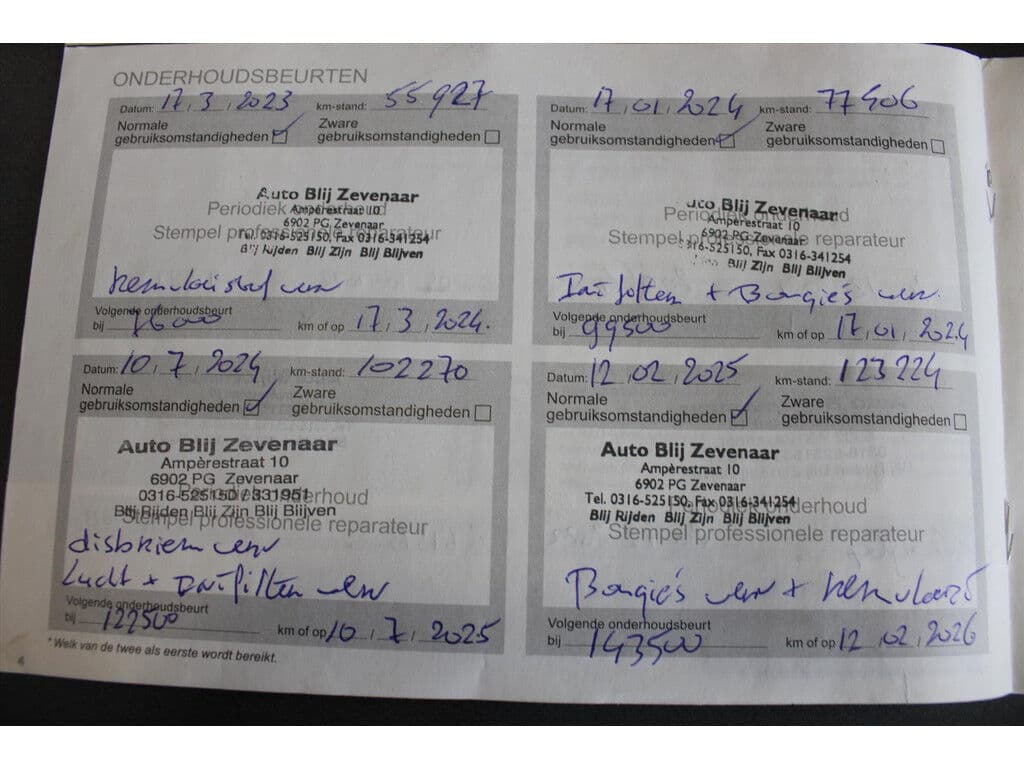 ONDERHOUDSBEURTEN
Datum: 17, 3, 2023 km-stand: 55927
Normale gebruiksomstandigheden Zware gebruiksomstandigheden
Auto Blij Zevenaar
Periodiek onderhoud
Ampèrestraat 10
6902 PG Zevenaar
Stempel professionele reparateur
Tel. 0316-525150, Fax 0316-341254
Blij Rijden Blij Zijn Blij Blijven
Volgende onderhoudsbeurt
bij 76000 km of op 17, 3, 2024.
Datum: 17, 01, 2024 km-stand: 77406
Normale gebruiksomstandigheden Zware gebruiksomstandigheden
uto Blij Zevenaar
Periodiek onderhoud
Ampèrestraat 10
6902 PG Zevenaar
Stempel professionele reparateur
316-525150, Fax 0316-341254
Blij Zijn Blij Blijven
+ Bougie's verv.
Volgende onderhoudsbeurt
bij 99500 km of op 17, 01, 2024
Datum: 10, 7, 2024 km-stand: 102270
Normale gebruiksomstandigheden Zware gebruiksomstandigheden
Auto Blij Zevenaar
Ampèrestraat 10
6902 PG Zevenaar
Periodiek onderhoud
0316-525150 / 331951
Blij Rijden Blij Zijn Blij Blijven
Stempel professionele reparateur
verv
Lucht + verv
Volgende onderhoudsbeurt
bij 122500 km of op 10, 7, 2025
Datum: 12, 02, 2025 km-stand: 123224
Normale gebruiksomstandigheden Zware gebruiksomstandigheden
Auto Blij Zevenaar
Ampèrestraat 10
6902 PG Zevenaar
Tel. 0316-525150, Fax 0316-341254
Periodiek onderhoud
Blij Rijden Blij Zijn Blij Blijven
Stempel professionele reparateur
Bougie's verv +
Volgende onderhoudsbeurt
bij 143500 km of op 12, 02, 2026
* Welk van de twee als eerste wordt bereikt.
4